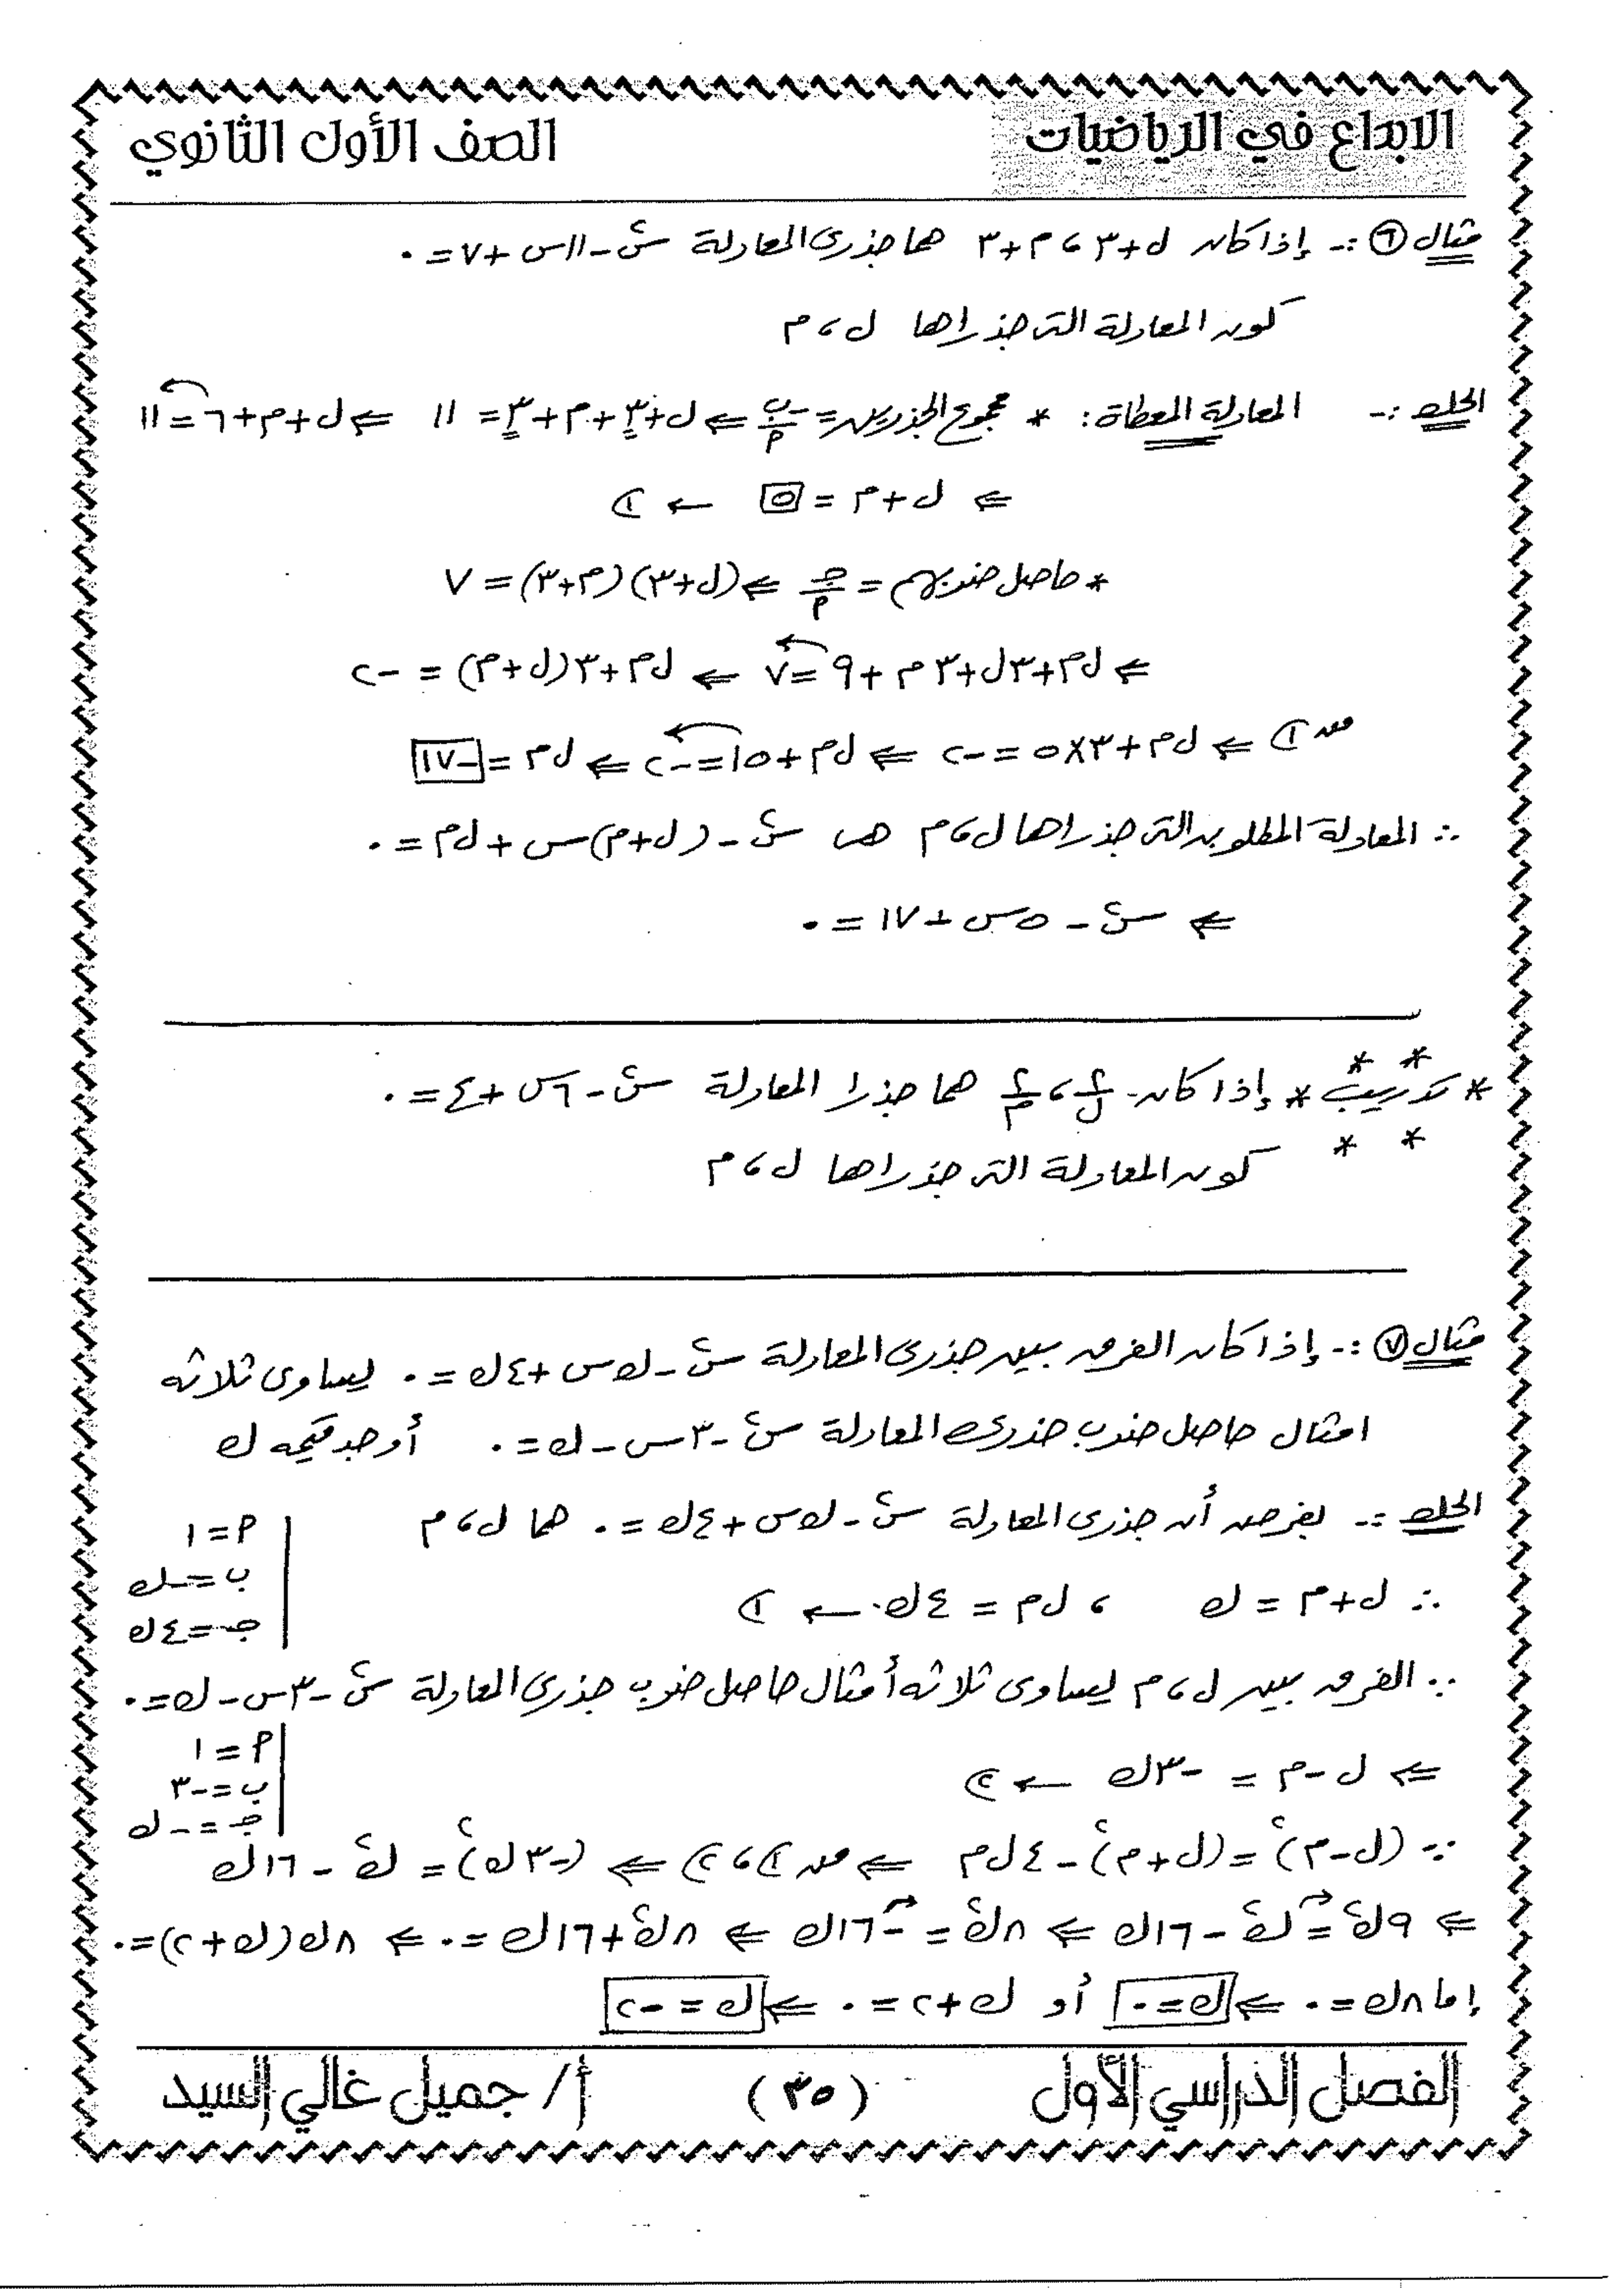 الابداع في الرياضيات
الصف الأول الثانوي
مثال ٦ :- إذا كان ل+٣ ، م+٣ هما جذرى المعادلة س٢ - ١١س + ٧ = ٠
كون المعادلة التى جذراها ل ، م
الحل :- المعادلة المعطاة : * مجموع الجذرين = -ب/أ ⇐ ل+٣+م+٣ = ١١ ⇐ ل+م+٦ = ١١
⇐ ل+م = ٥ ← ١
* حاصل ضربهم = جـ/أ ⇐ (ل+٣)(م+٣) = ٧
⇐ ل م+٣ل+٣م+٩ = ٧ ⇐ ل م+٣(ل+م) = -٢
من ١ ⇐ ل م+٣×٥ = -٢ ⇐ ل م+١٥ = -٢ ⇐ ل م = -١٧
∴ المعادلة المطلوبه التى جذراها ل ، م هى س٢ - (ل+م)س + ل م = ٠
⇐ س٢ - ٥س + ١٧ = ٠
* تدريب * إذا كان ٢/ل ، ٢/م هما جذرا المعادلة س٢ - ٦س + ٤ = ٠
كون المعادلة التى جذراها ل ، م
مثال ٧ :- إذا كان الفرق بين جذرى المعادلة س٢ - ك س + ٤ك = ٠ يساوى ثلاثه
امثال حاصل ضرب جذرى المعادلة س٢ - ٣س - ك = ٠ أوجد قيمه ك
الحل :- بفرض أن جذرى المعادلة س٢ - ك س + ٤ك = ٠ هما ل ، م
أ = ١
ب = -ك
جـ = ٤ك
∴ ل+م = ك ، ل م = ٤ك ← ١
∵ الفرق بين ل ، م يساوى ثلاثه أمثال حاصل ضرب جذرى المعادلة س٢ - ٣س - ك = ٠
أ = ١
ب = -٣
جـ = -ك
⇐ ل - م = -٣ك ← ٢
∵ (ل-م)٢ = (ل+م)٢ - ٤ل م ⇐ من ١ ، ٢ ⇐ (-٣ك)٢ = ك٢ - ١٦ك
⇐ ٩ك٢ = ك٢ - ١٦ك ⇐ ٨ك٢ = -١٦ك ⇐ ٨ك٢+١٦ك = ٠ ⇐ ٨ك(ك+٢) = ٠
إما ٨ك = ٠ ⇐ ك = ٠ أو ك+٢ = ٠ ⇐ ك = -٢
الفصل الدراسي الأول
( ٣٥ )
أ/ جميل غالي السيد